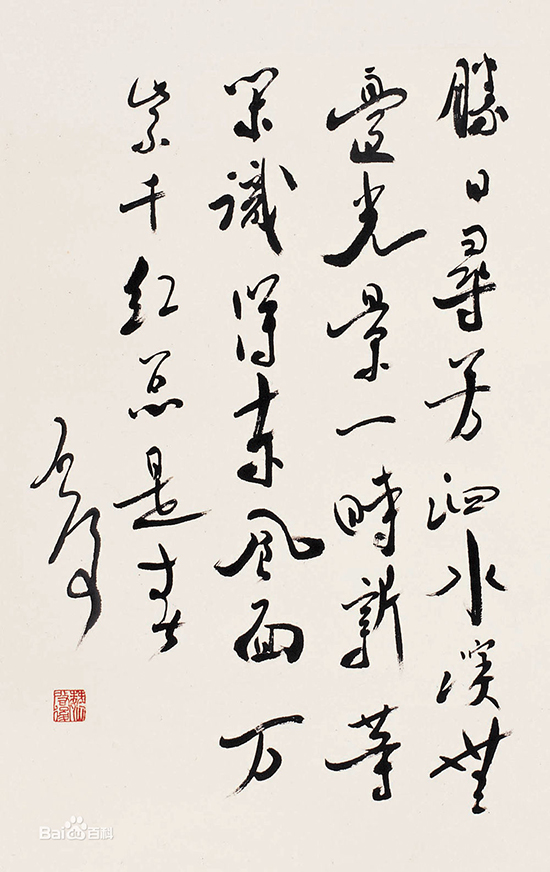 勝日尋芳泗水濱無
邊光景一時新等
閒識得東風面万
紫千紅總是春
Bai百科